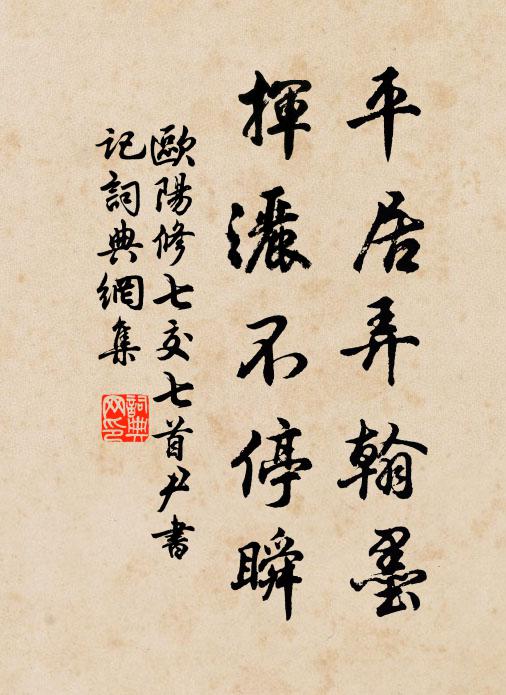 平居弄翰墨
揮灑不停瞬
歐陽修七交七首尹書
記詞典網集
詞典
网印